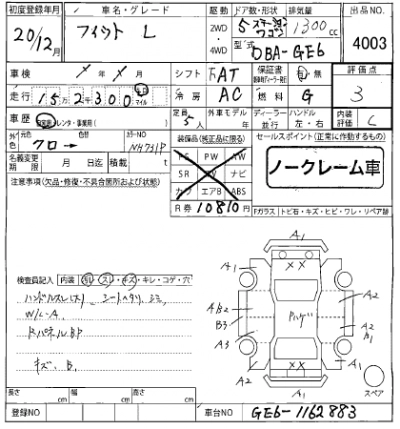 初度登録年月 車名・グレード 駆動 ドア数・形状 排気量 出品NO.
20/12月 フィット L 2WD 5 ステーションワゴン 1300cc
・4WD 型式 DBA-GE6 4003
車検 年 月 シフト FAT 保証書 有・無 評価点
走行 15万2千300 マイル 冷房 AC 燃料 G 3
車歴 自家用・レンタ・事業用( ) 定員 5人 外車モデル 年 ディーラー・並行 ハンドル 左・右 内装評価 C
外色 元色 クロ→ カラーNO NH731P 装備品(純正品に限る) セールスポイント(正常に作動するもの)
名義変更期限 月 日迄 積載 t PS PW AW
注意事項(欠品・修復・不具合箇所および状態) SR TV ナビ
カワ エアB ABS
ノークレーム車
R券 10810円 Fガラス トビ石・キズ・ヒビ・ワレ・リペア跡
A1
検査員記入 内装 スレ・キズ・キレ・コゲ・穴
A1 XX A1
ハンドルスレ(大)、シートヘタリ、シミ
W/C-A
A・B2 A2
B3 A2
B1
RパネルBP
A3 A1
キズ、B、
XX
A2 A2
A1
スペア
長さ cm 幅 cm 高さ cm
登録NO 車台NO GE6-1162883